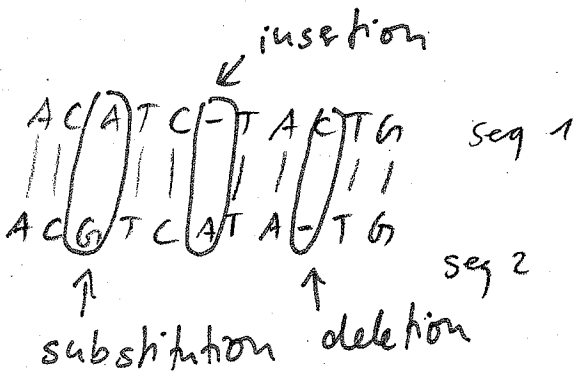 insetion
A C A T C - T A C T G seq 1
A C G T C A T A - T G
seq 2
substitution deletion